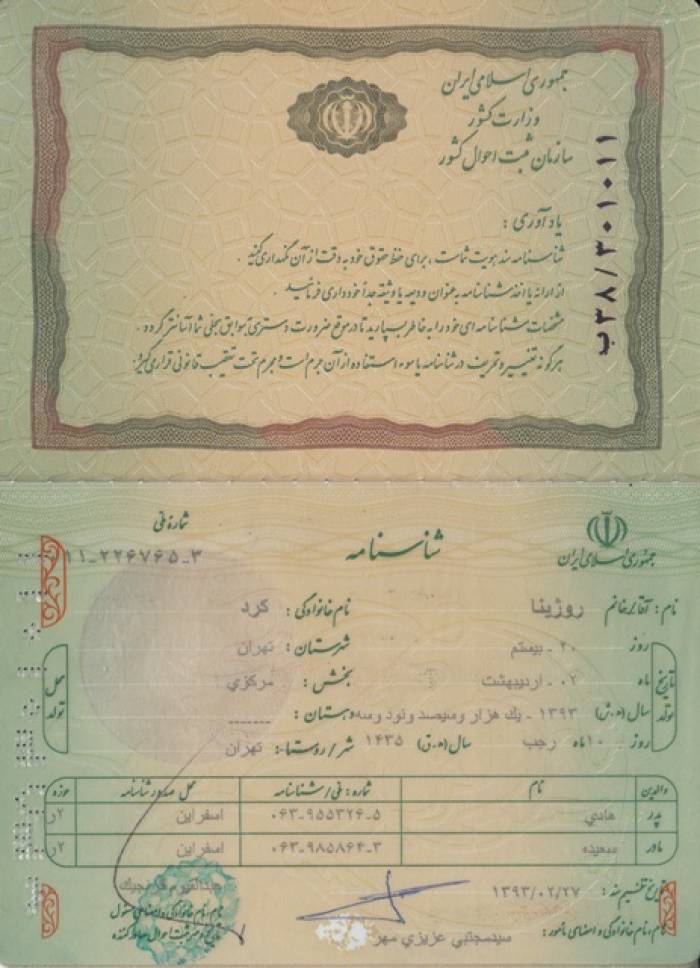 جمهوری اسلامی ایران
وزارت کشور
سازمان ثبت احوال کشور
ب۳۸/۳۰۱۰۱۱
یادآوری :
شناسنامه سند هویت شماست ، برای حفظ حقوق خود به دقت از آن نگهداری کنید .
از ارائه یا اخذ شناسنامه به عنوان ودیعه یا وثیقه جداً خودداری فرمائید .
مشخصات شناسنامه ای خود را به خاطر بسپارید تا در موقع ضرورت دسترسی به سوابق سجلی شما آسانتر گردد .
هرگونه تغییر و تحریف در شناسنامه یا سوء استفاده از آن جرم است و مجرم تحت تعقیب قانونی قرار می گیرد .
جمهوری اسلامی ایران
شناسنامه
شماره ملی
۱۱-۲۲۶۷۶۵-۳
نام : آقا/خانم روژینا نام خانوادگی : کرد
تاریخ تولد
روز ۲۰ - بیستم شهرستان : تهران
ماه ۰۲ - اردیبهشت بخش : مرکزی
سال (ه.ش) ۱۳۹۳ - یك هزار وسیصد ونود وسه دهستان : ------
روز ۱۰ ماه رجب سال (ه.ق) ۱۴۳۵ شهر/روستا : تهران
محل تولد
والدین نام شماره : ملی/شناسنامه محل صدور شناسنامه حوزه
پدر هادي ۰۶۳-۹۵۵۳۲۶-۵ اسفراین ۲ر
مادر سعیده ۰۶۳-۹۸۵۸۶۴-۳ اسفراین ۲ر
تاریخ تنظیم سند : ۱۳۹۳/۰۲/۲۷
نام ، نام خانوادگی و امضای مأمور : سیدمجتبي عزیزي مهر
نام ، نام خانوادگی و امضای مسئول